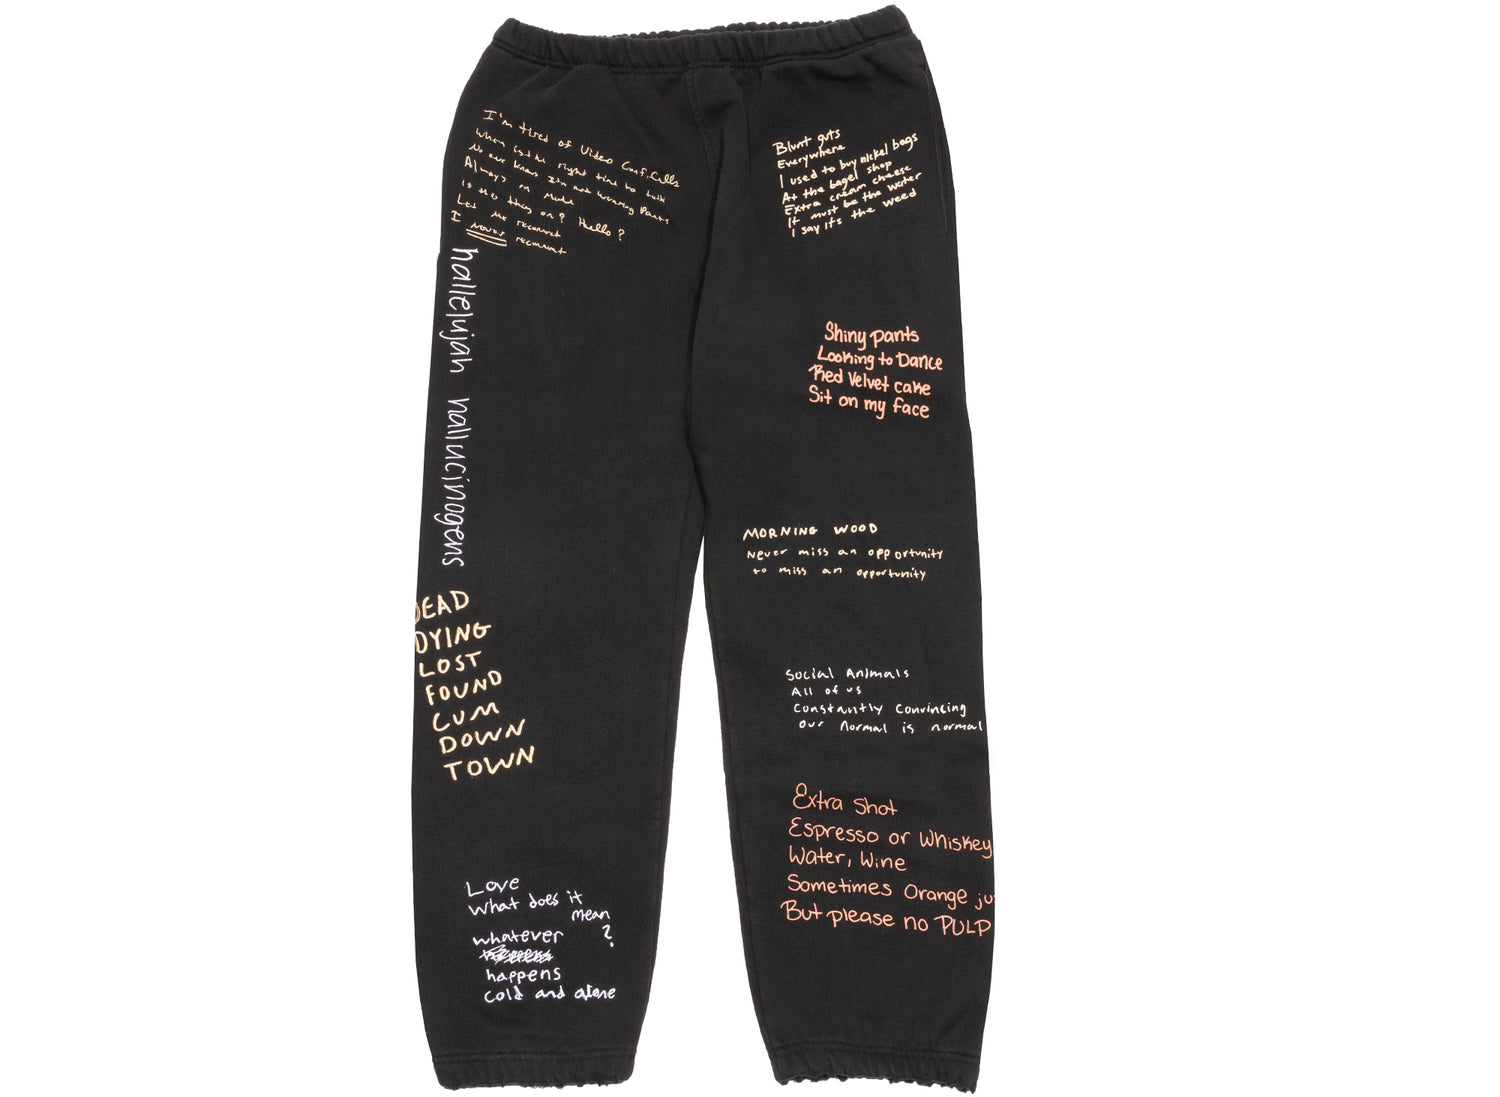 I'm tired of Video Conf. Calls
When is the right time to talk
No one knows I'm not wearing pants
Always on Mute
Is this thing on? Hello?
Let me reconnect
I never reconnect
hallelujah hallucinogens
DEAD
DYING
LOST
FOUND
CUM
DOWN
TOWN
Love
What does it
mean
whatever ?
happens
cold and alone
Blunt guts
Everywhere
I used to buy nickel bags
At the bagel shop
Extra cream cheese
It must be the water
I say it's the weed
Shiny pants
Looking to Dance
Red Velvet cake
Sit on my face
MORNING WOOD
Never miss an opportunity
to miss an opportunity
Social Animals
All of us
Constantly Convincing
Our Normal is normal
Extra shot
Espresso or Whiskey
Water, Wine
Sometimes Orange ju
But please no PULP